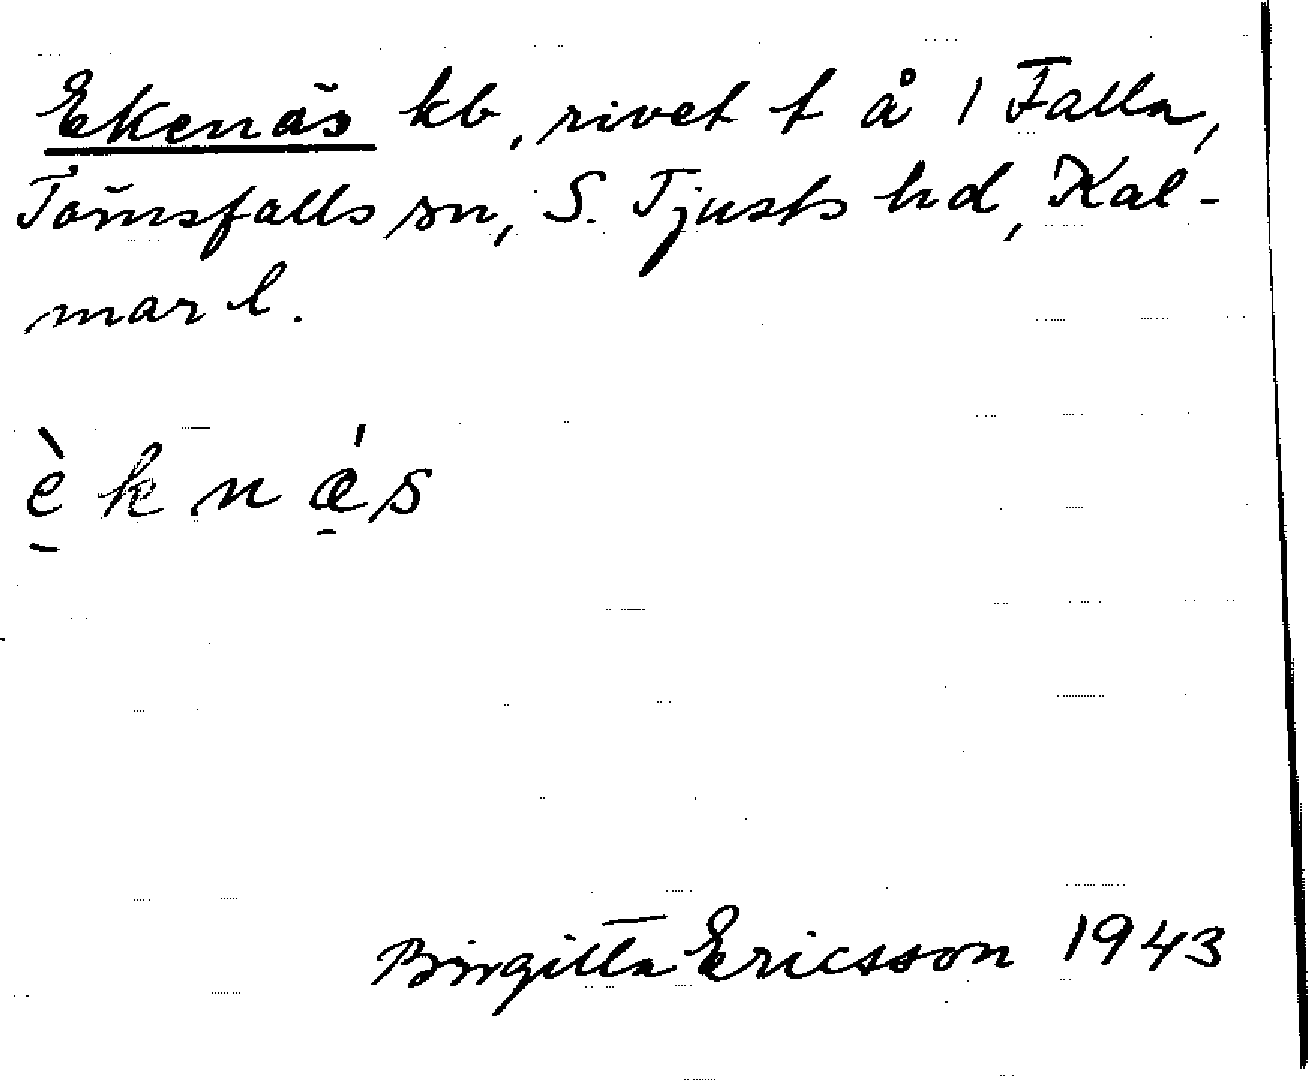 Ekenäs kb, rivet t å 1 Falla,
Törnsfalls sn, S. Tjusts hd, Kal-
mar l.
è̠ k n ǽ̠ s
Birgitta Ericsson 1943